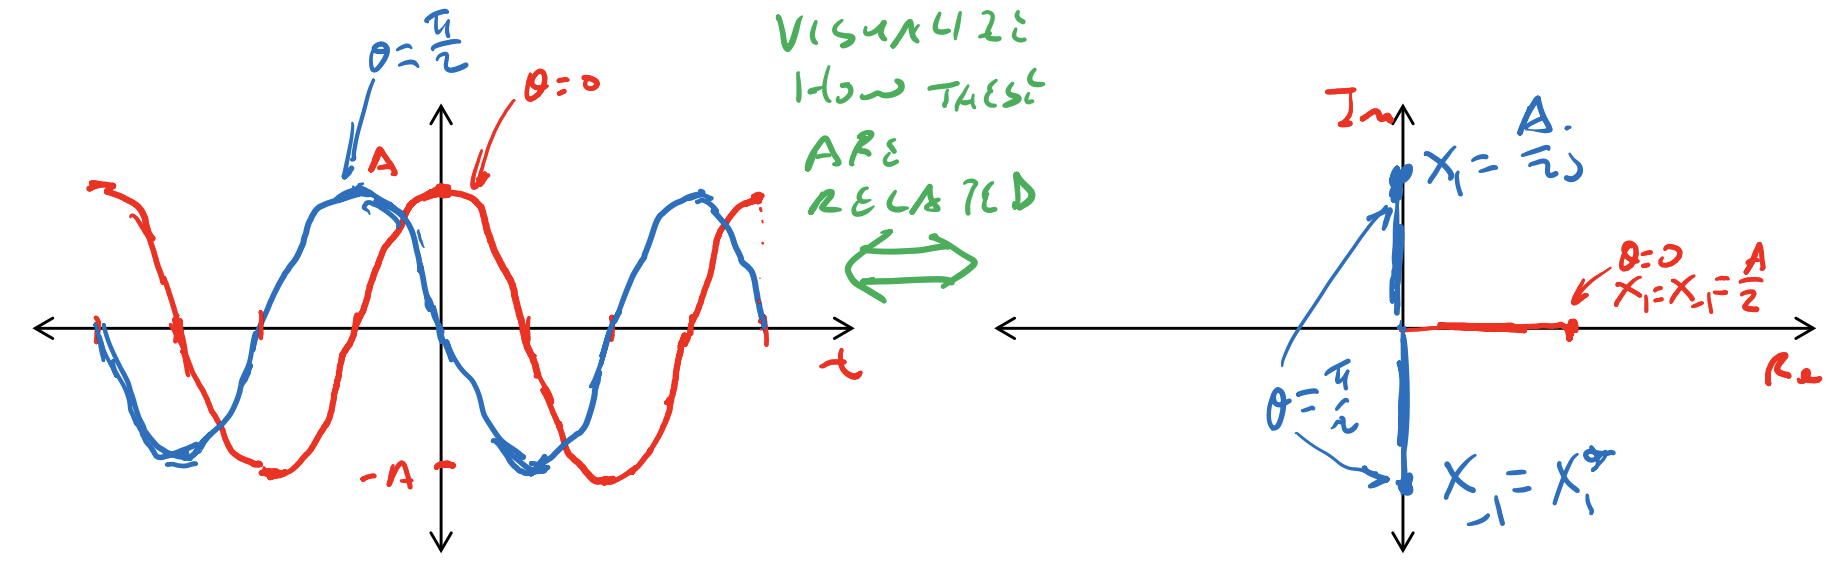 θ = π/2
θ = 0
A
-A
t
VISUALIZE
HOW THESE
ARE
RELATED
Im
X₁ = A/2 j
θ = 0
X₁ = X₋₁ = A/2
Re
θ = π/2
X₋₁ = X₁*